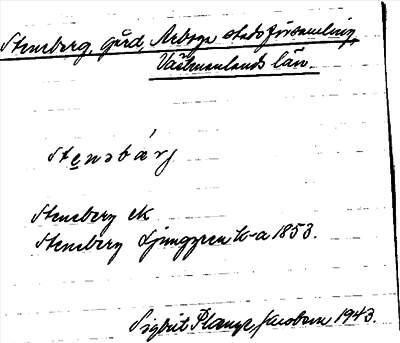 Steneberg, gård, Arboga stadsförsamling,
Västmanlands län.
Stenəbárj
Steneberg ek
Steneberg Ljunggren k-a 1853.
Sigbrit Plænge Jacobson 1943.